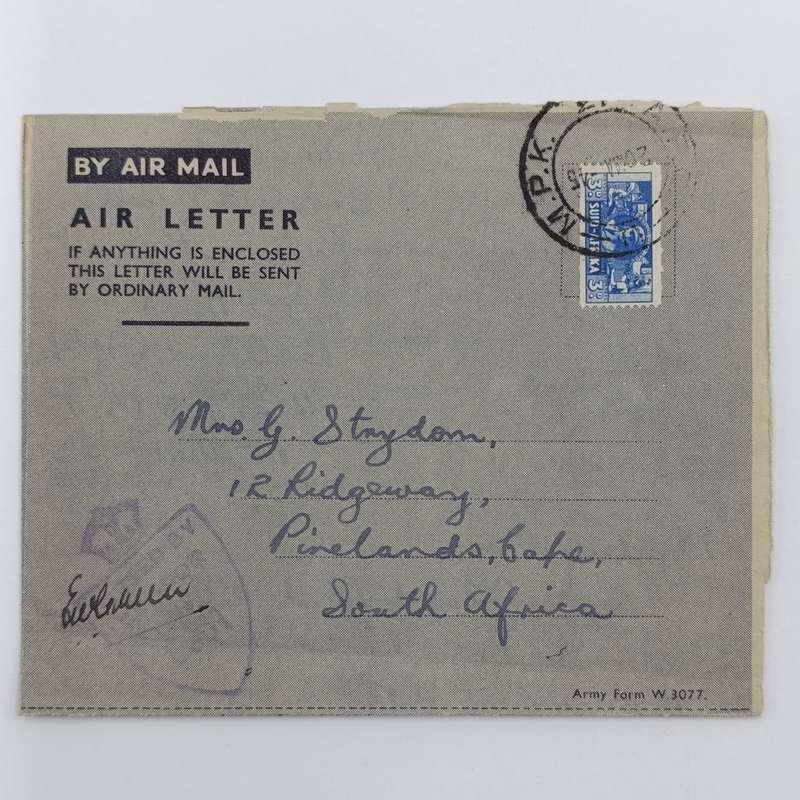 BY AIR MAIL
AIR LETTER
IF ANYTHING IS ENCLOSED
THIS LETTER WILL BE SENT
BY ORDINARY MAIL.
M.P.K.
3D SUID-AFRIKA 3D
Mrs. G. Strydom,
12 Ridgeway,
Pinelands, Cape,
South Africa
Army Form W.3077.